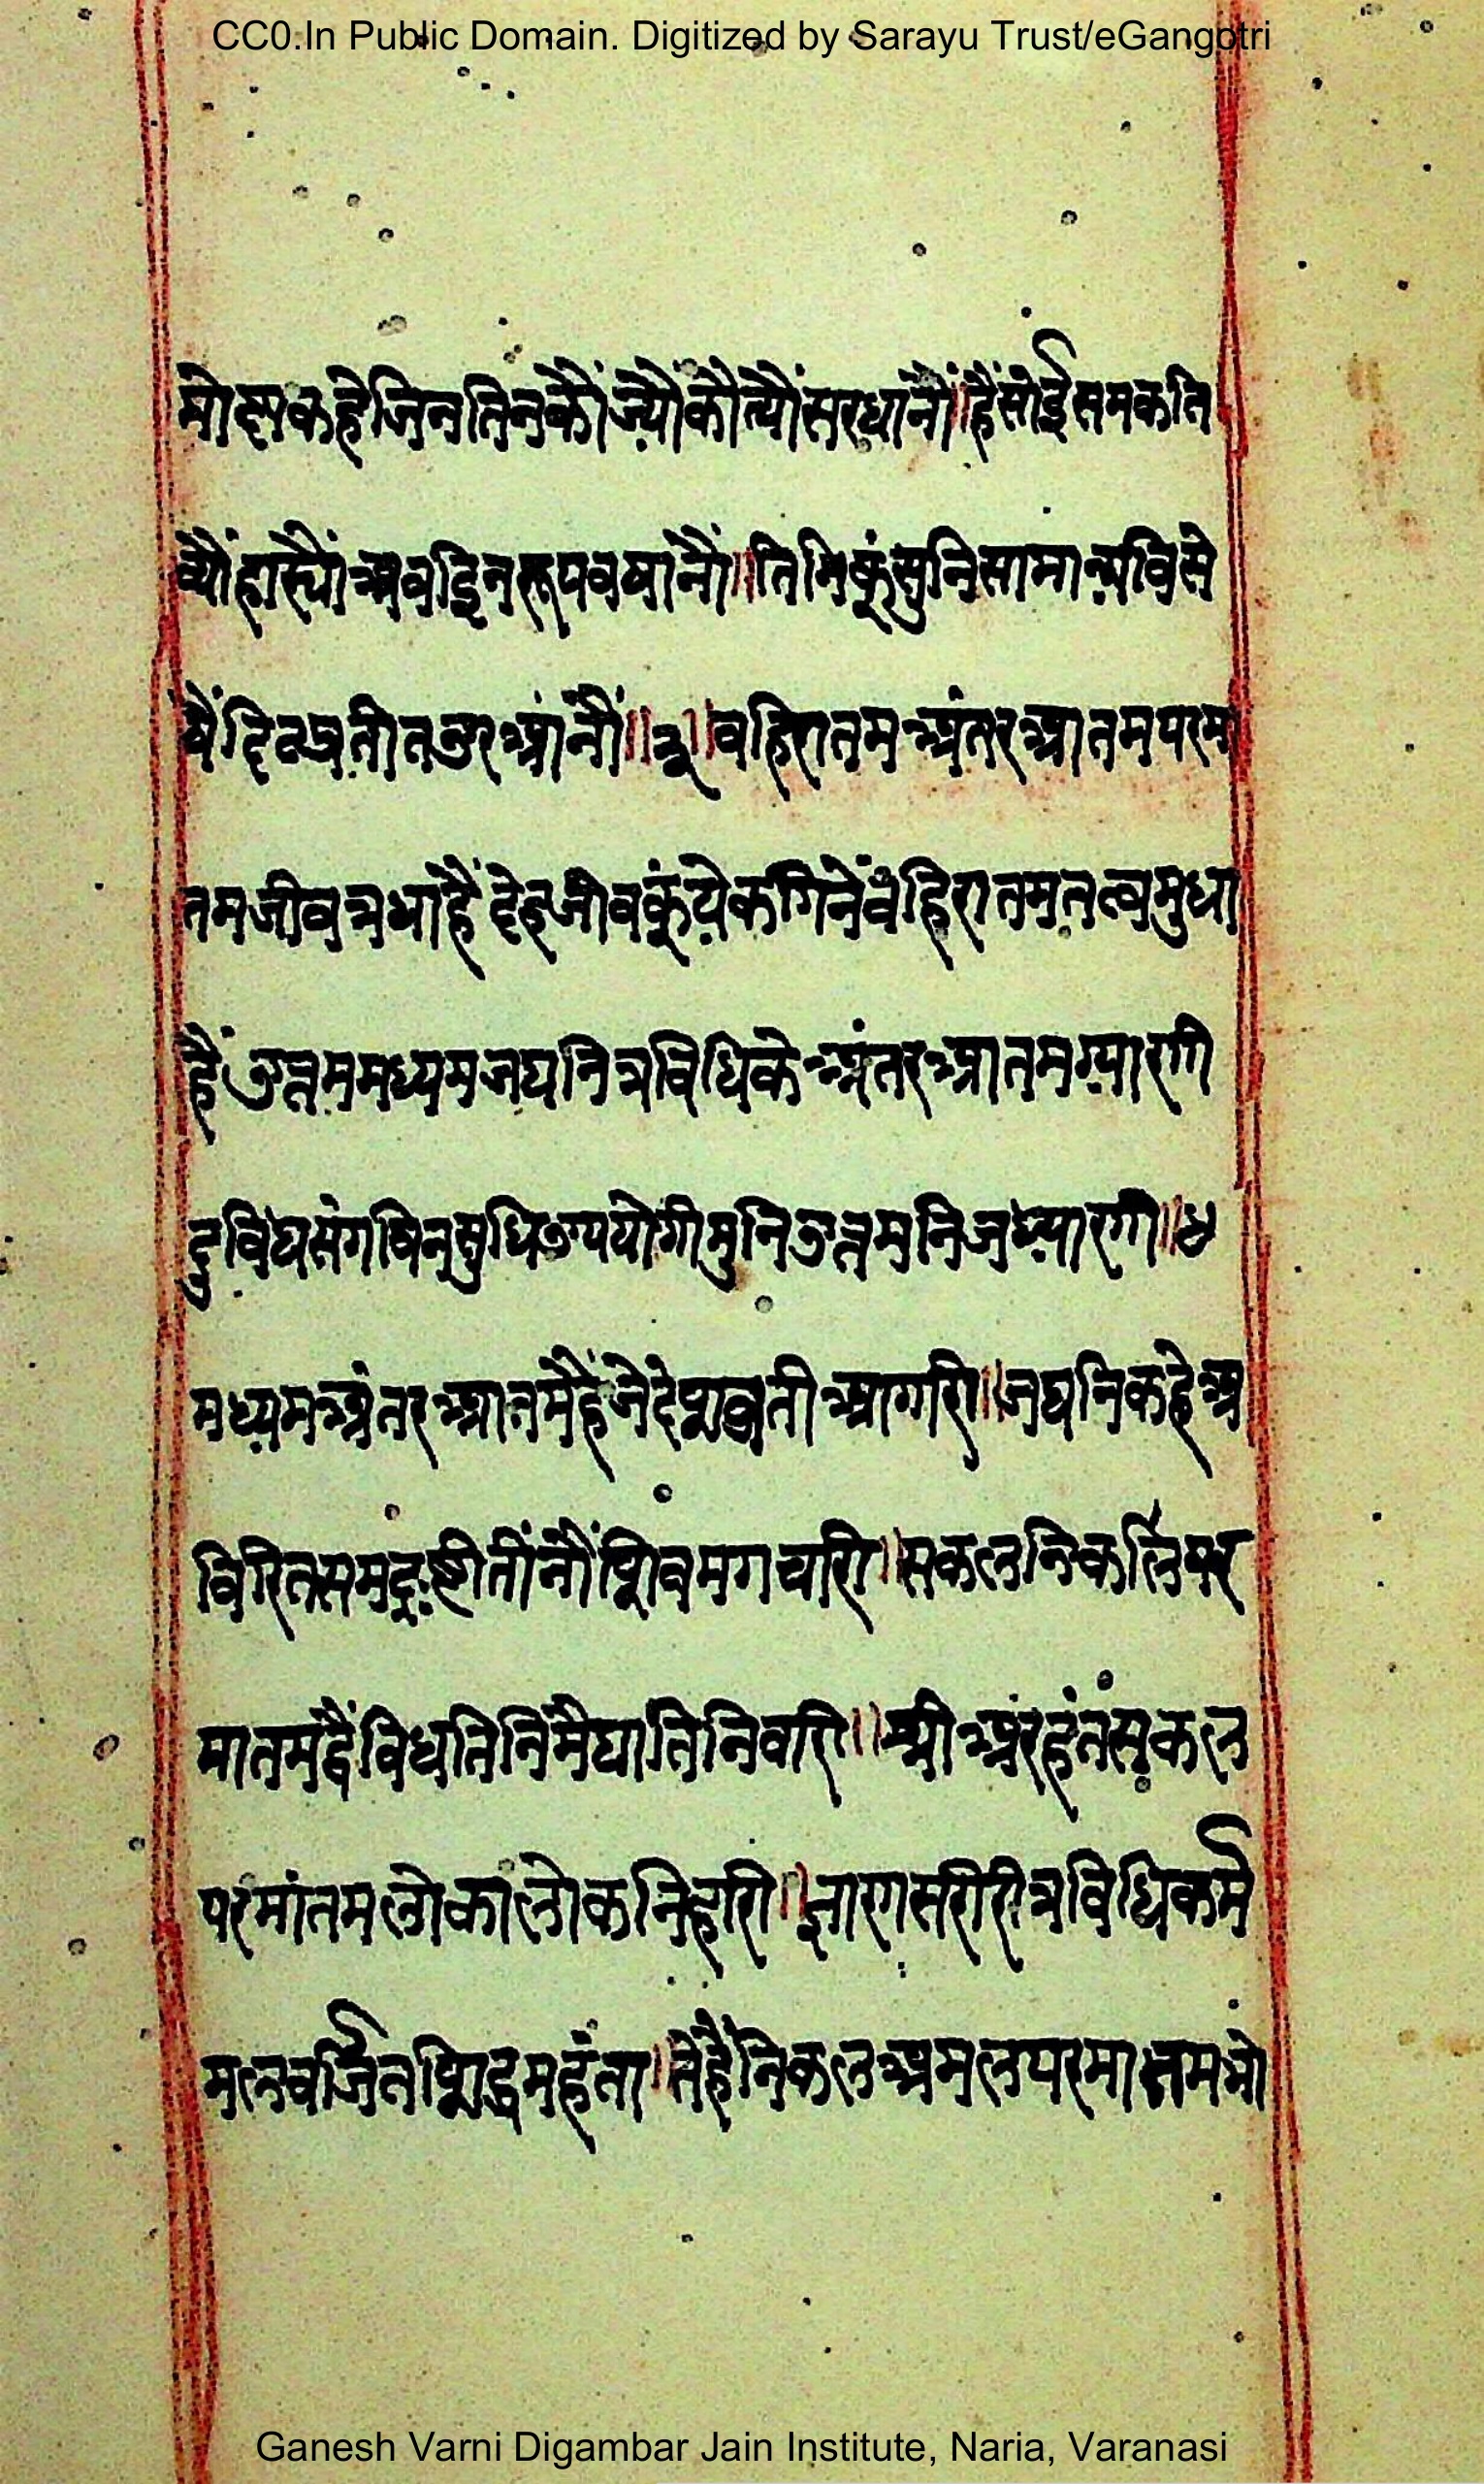 CC0.In Public Domain. Digitized by Sarayu Trust/eGangotri
मोक्षकहेजिनतिनकौंज्यौंकौत्यौंसरधानौं॥हैंसोईसमकति
व्यौंहास्यौंअवइिनरूपवषानौं॥तिनिकूंसुनिसामान्यविसे
षैंदिढप्रतीतउरआंनौं॥३॥वहिरातमअंतरआतमपरमा
तमजीवत्रधाहैंदेहजीवकूंयेकगिनेंवंहिरातमतत्वमुधा
हैंउत्तममध्यमजघनित्रविधिकेअंतरआतमग्यारगी
दुविधसंगविनसुधिउपयोगीमुनिउत्तमनिजध्यारगी॥४
मध्यमअंतरआतमैहैंजेदेषाव्रतीआगारी॥जघनिकहेअ
विरितसमदृष्टीतींनौंषिवमगचारी॥सकलनिकलिंपर
मातमद्वैंविधतिनिमैंघातिनिवारी॥श्रीअरंहंतंसकल
परमांतमलोकालोकनिहारी॥ज्ञारासरीरीत्रविधिकर्म
मलवर्जितषिद्धमहंता॥तेहैंनिकलअमलपरमातमभो
Ganesh Varni Digambar Jain Institute, Naria, Varanasi